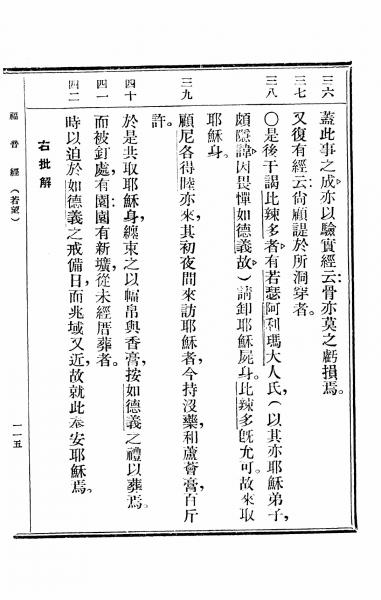 三六
蓋此事之成亦以驗實經云骨亦莫之虧損焉。
三七
又復有經云尙顧諟於所洞穿者。
三八
〇是後干謁比辣多者有若瑟阿利瑪大人氏，（以其亦耶穌弟子，
頗隱諱因畏憚如德義故）請卸耶穌屍身。比辣多旣允可。故來取
耶穌身。
三九
顧尼各得睦亦來，其初夜間來訪耶穌者，今持沒藥和蘆薈膏百斤
許。
四十
於是共取耶穌身，纏束之以幅帛與香膏，按如德義之禮以葬焉。
四一
而被釘處，有園園有新壙，從未經厝葬者。
四二
時以迫於如德義之戒備日，而兆域又近，故就此奉安耶穌焉。
右批解
福音經（若望）
一一五